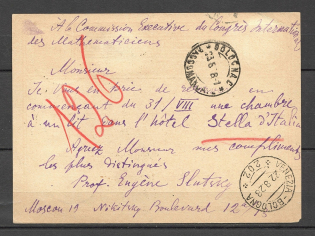 A la Commission Executive du Congrès International
des Mathematiciens
Monsieur
Je Vous en prie de
commencement du 31/VIII une chambre
à un lit dans l'hôtel Stella d'Italia
Agréez Monsieur mes compliments
les plus distingués
Prof. Eugène Slutsky
Moscou 19 Nikitsky Boulevard 12
126
BOLOGNA
VENEZIA-BOLOGNA